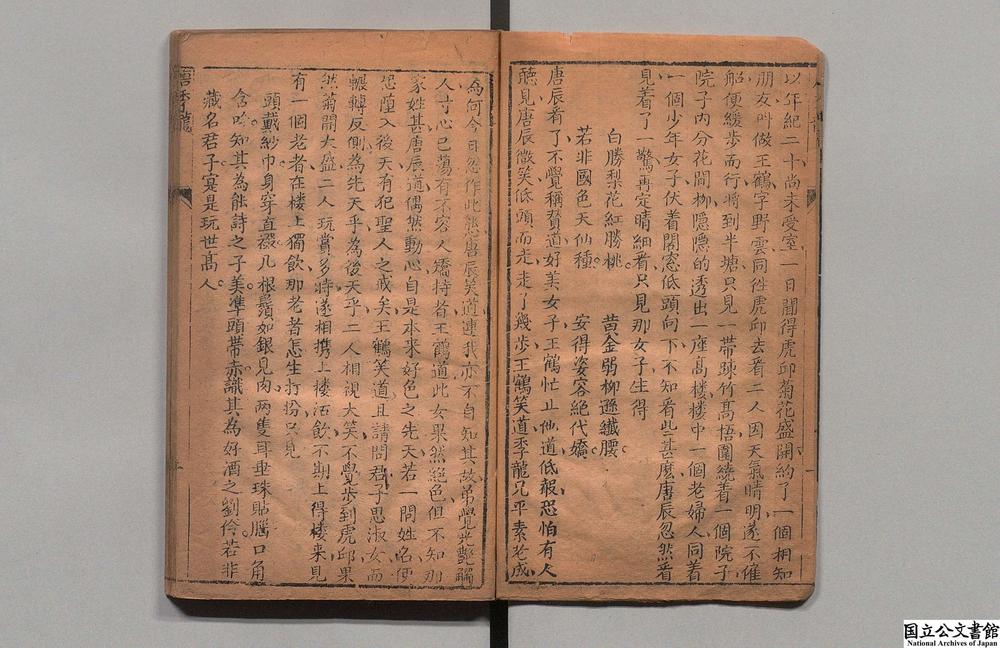 以年紀二十尚未受室一日聞得虎邱菊花盛開約了一個相知
朋友叫做王鶴字野雲同徃虎邱去看二人因天氣晴明遂不催
船便緩步而行將到半塘只見一帶踈竹髙梧圍繞着一個院子
院子內分花間柳隱隱的透出一座髙樓樓中一個老婦人同着
一個少年女子伏着閣窓低頭向下不知看些甚麽唐辰忽然看
見着了一驚再定晴細看只見那女子生得
白勝梨花紅勝桃　黄金弱柳遜纎腰
若非國色天仙種　安得姿容絕代嬌
唐辰看了不覺稱賛道好美女子王鶴忙止他道低聲恐怕有人
聽見唐辰微笑低頭而走走了幾步王鶴笑道季龍兄平素老成
為何今日忽作此態唐辰笑道連我亦不自知其故弟覺光艷觸
人寸心已蕩有不容人矯持者王鶴道此女果然絕色但不知那
家姓甚唐辰道偶然動心自是本来好色之先天若一問姓名便
恐墮入後天有犯聖人之戒矣王鶴笑道且請問君子思淑女而
輾轉反側為先天乎為後天乎二人相視大笑不覺步到虎邱果
然菊開大盛二人玩賞多時遂相携上樓沽飲不期上得樓来見
有一個老者在楼上獨飲那老者怎生打扮只見
頭戴紗巾身穿直襬几根鬍如銀見肉兩隻耳垂珠貼腦口角
含吟知其為能詩之子美凖頭帯赤識其為好酒之劉伶若非
藏名君子㝎是玩世髙人
季龍
国立公文書館
National Archives of Japan